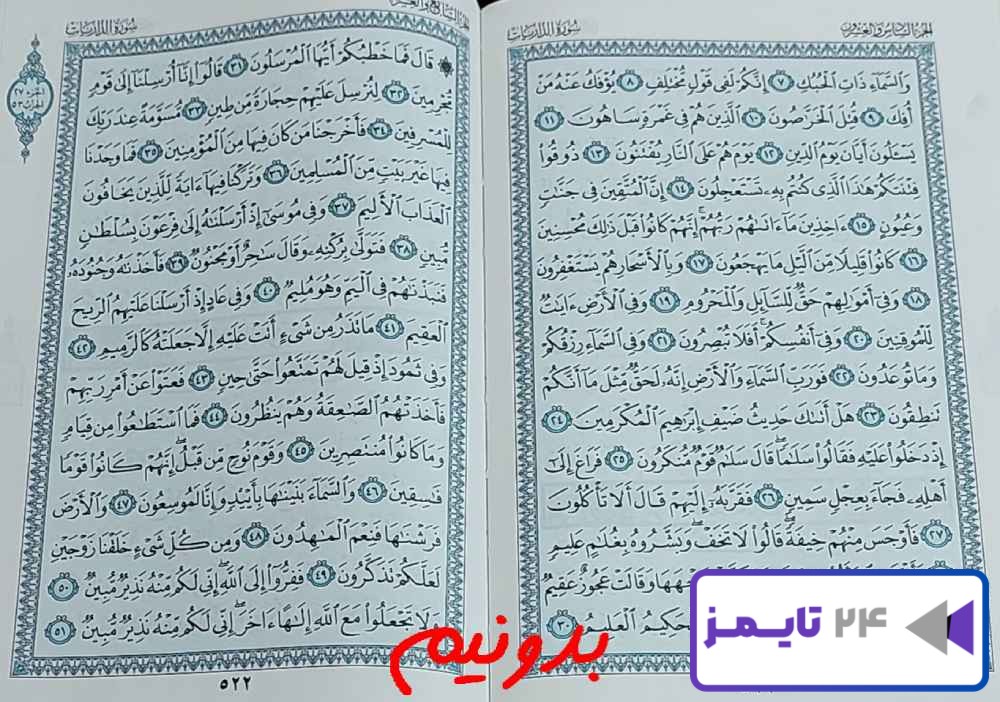 الجزء السادس والعشرون
سورة الذاريات
وَالسَّمَاءِ ذَاتِ الْحُبُكِ ٧ إِنَّكُمْ لَفِي قَوْلٍ مُّخْتَلِفٍ ٨ يُؤْفَكُ عَنْهُ مَنْ
أُفِكَ ٩ قُتِلَ الْخَرَّاصُونَ ١٠ الَّذِينَ هُمْ فِي غَمْرَةٍ سَاهُونَ ١١
يَسْـَٔلُونَ أَيَّانَ يَوْمُ الدِّينِ ١٢ يَوْمَ هُمْ عَلَى النَّارِ يُفْتَنُونَ ١٣ ذُوقُوا
فِتْنَتَكُمْ هَٰذَا الَّذِي كُنتُم بِهِ تَسْتَعْجِلُونَ ١٤ إِنَّ الْمُتَّقِينَ فِي جَنَّاتٍ
وَعُيُونٍ ١٥ ءَاخِذِينَ مَا ءَاتَىٰهُمْ رَبُّهُمْ إِنَّهُمْ كَانُوا قَبْلَ ذَٰلِكَ مُحْسِنِينَ
١٦ كَانُوا قَلِيلًا مِّنَ الَّيْلِ مَا يَهْجَعُونَ ١٧ وَبِالْأَسْحَارِ هُمْ يَسْتَغْفِرُونَ
١٨ وَفِي أَمْوَٰلِهِمْ حَقٌّ لِّلسَّائِلِ وَالْمَحْرُومِ ١٩ وَفِي الْأَرْضِ ءَايَٰتٌ
لِّلْمُوقِنِينَ ٢٠ وَفِي أَنفُسِكُمْ أَفَلَا تُبْصِرُونَ ٢١ وَفِي السَّمَاءِ رِزْقُكُمْ
وَمَا تُوعَدُونَ ٢٢ فَوَرَبِّ السَّمَاءِ وَالْأَرْضِ إِنَّهُ لَحَقٌّ مِّثْلَ مَا أَنَّكُمْ
تَنطِقُونَ ٢٣ هَلْ أَتَىٰكَ حَدِيثُ ضَيْفِ إِبْرَٰهِيمَ الْمُكْرَمِينَ ٢٤
إِذْ دَخَلُوا عَلَيْهِ فَقَالُوا سَلَٰمًا قَالَ سَلَٰمٌ قَوْمٌ مُّنكَرُونَ ٢٥ فَرَاغَ إِلَىٰ
أَهْلِهِ فَجَاءَ بِعِجْلٍ سَمِينٍ ٢٦ فَقَرَّبَهُ إِلَيْهِمْ قَالَ أَلَا تَأْكُلُونَ
٢٧ فَأَوْجَسَ مِنْهُمْ خِيفَةً قَالُوا لَا تَخَفْ وَبَشَّرُوهُ بِغُلَٰمٍ عَلِيمٍ
وَقَالَتْ عَجُوزٌ عَقِيمٌ
الْحَكِيمُ الْعَلِيمُ ٣٠
سورة الذاريات
الجزء السابع والعشرون
الجزء ٢٧
الحزب ٥٣
قَالَ فَمَا خَطْبُكُمْ أَيُّهَا الْمُرْسَلُونَ ٣١ قَالُوا إِنَّا أُرْسِلْنَا إِلَىٰ قَوْمٍ
مُّجْرِمِينَ ٣٢ لِنُرْسِلَ عَلَيْهِمْ حِجَارَةً مِّن طِينٍ ٣٣ مُّسَوَّمَةً عِندَ رَبِّكَ
لِلْمُسْرِفِينَ ٣٤ فَأَخْرَجْنَا مَن كَانَ فِيهَا مِنَ الْمُؤْمِنِينَ ٣٥ فَمَا وَجَدْنَا
فِيهَا غَيْرَ بَيْتٍ مِّنَ الْمُسْلِمِينَ ٣٦ وَتَرَكْنَا فِيهَا ءَايَةً لِّلَّذِينَ يَخَافُونَ
الْعَذَابَ الْأَلِيمَ ٣٧ وَفِي مُوسَىٰ إِذْ أَرْسَلْنَٰهُ إِلَىٰ فِرْعَوْنَ بِسُلْطَٰنٍ
مُّبِينٍ ٣٨ فَتَوَلَّىٰ بِرُكْنِهِ وَقَالَ سَٰحِرٌ أَوْ مَجْنُونٌ ٣٩ فَأَخَذْنَٰهُ وَجُنُودَهُ
فَنَبَذْنَٰهُمْ فِي الْيَمِّ وَهُوَ مُلِيمٌ ٤٠ وَفِي عَادٍ إِذْ أَرْسَلْنَا عَلَيْهِمُ الرِّيحَ
الْعَقِيمَ ٤١ مَا تَذَرُ مِن شَيْءٍ أَتَتْ عَلَيْهِ إِلَّا جَعَلَتْهُ كَالرَّمِيمِ ٤٢
وَفِي ثَمُودَ إِذْ قِيلَ لَهُمْ تَمَتَّعُوا حَتَّىٰ حِينٍ ٤٣ فَعَتَوْا عَنْ أَمْرِ رَبِّهِمْ
فَأَخَذَتْهُمُ الصَّٰعِقَةُ وَهُمْ يَنظُرُونَ ٤٤ فَمَا اسْتَطَٰعُوا مِن قِيَامٍ
وَمَا كَانُوا مُنتَصِرِينَ ٤٥ وَقَوْمَ نُوحٍ مِّن قَبْلُ إِنَّهُمْ كَانُوا قَوْمًا
فَٰسِقِينَ ٤٦ وَالسَّمَاءَ بَنَيْنَٰهَا بِأَيْيدٍ وَإِنَّا لَمُوسِعُونَ ٤٧ وَالْأَرْضَ
فَرَشْنَٰهَا فَنِعْمَ الْمَٰهِدُونَ ٤٨ وَمِن كُلِّ شَيْءٍ خَلَقْنَا زَوْجَيْنِ
لَعَلَّكُمْ تَذَكَّرُونَ ٤٩ فَفِرُّوا إِلَى اللَّهِ إِنِّي لَكُم مِّنْهُ نَذِيرٌ مُّبِينٌ ٥٠
وَلَا تَجْعَلُوا مَعَ اللَّهِ إِلَٰهًا ءَاخَرَ إِنِّي لَكُم مِّنْهُ نَذِيرٌ مُّبِينٌ ٥١
٥٢٢
بدونیم
۲۴ تایمز